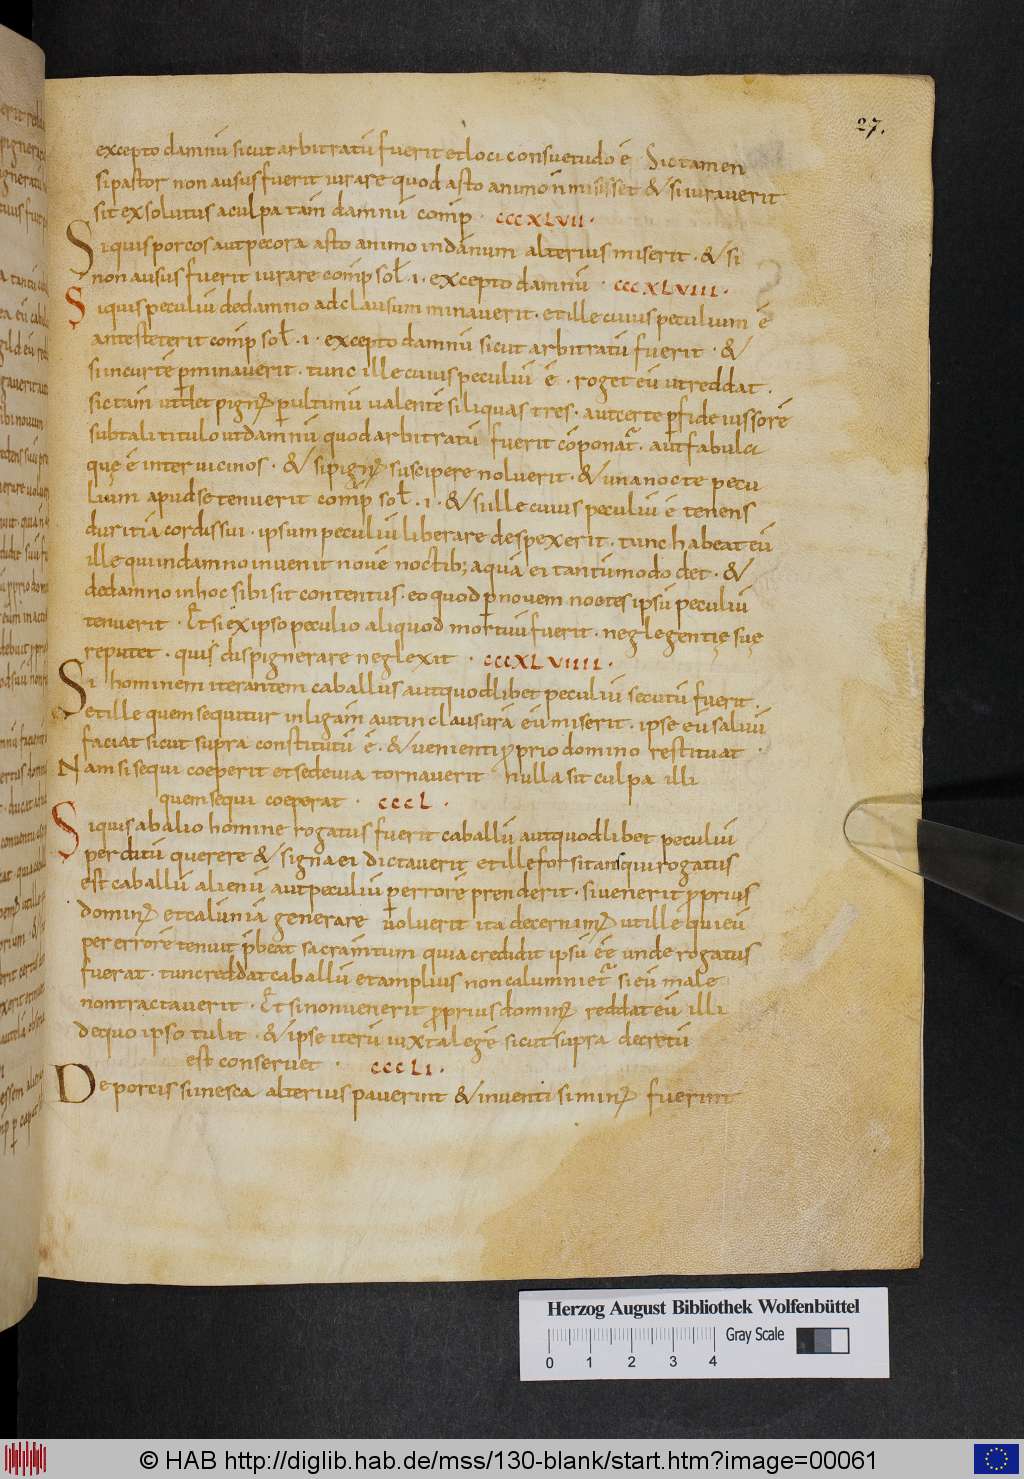 27.
excepto damnū sicut arbitratū fuerit et loci consuetudo ē Sic tamen
si pastor non ausus fuerit iurare quod asto animo n̄ misisset & si iuraverit
sit exsolutus a culpa tam̄ damnū comp̄ · cccXLVII ·
Si quis porcos aut pecora asto animo in dānum alterius miserit · & si
non ausus fuerit iurare comp̄ sol̄ · I · excepto damnū · cccXLVIII ·
Si quis peculiū de damno ad clausum minaverit · et ille cuius peculium ē
antesteterit comp̄ sol̄ · I · excepto damnū sicut arbitratū fuerit · &
si in curtē p̄minaverit · tunc ille cuius peculiū ē · roget eū ut reddat ·
sic tam̄ ut det pigñ p ultimū valentē siliquas tres · aut certe p fideiussorē
sub tali titulo ut damnū quod arbitratū fuerit cōponat̄ · aut fabula
quę ē inter vicinos · & si pigñ suscipere noluerit · & una nocte pecu
lium apud se tenuerit comp̄ sol̄ · I · & si ille cuius peculiū ē tenens
duritiā cordis sui · ipsum peculiū liberare despexerit · tunc habeat eū
ille qui in damno invenit novē noctib; aquā ei tantūmodo det · &
de damno in hoc sibi sit contentus · eo quod p novem noctes ipsū peculiū
tenuerit · Et si ex ipso peculio aliquod mortuū fuerit · neglegentię suę
reputet · qui dispignerare neglexit · cccXLVIIII ·
Si hominem iterantem caballus aut quodlibet peculiū secutū fuerit ·
et ille quem sequitur in ligam̄ aut in clausurā eū miserit · ipse eū salvū
faciat sicut supra constitutū ē · & venienti pprio domino restituat ·
Nam si sequi coeperit et sedevia tornaverit nulla sit culpa illi
quem sequi coeperat · cccL ·
Si quis ab alio homine rogatus fuerit caballū aut quodlibet peculiū
perditū querere & signa ei dictaverit et ille forsitan qui rogatus
est caballū alienū aut peculiū p errorē prenderit · si venerit pprius
domiñ et calūniā generare voluerit ita decernim̄ ut ille qui eū
per errorē tenuit p̄beat sacram̄tum quia credidit ipsū eē unde rogatus
fuerat · tunc reddat caballū et amplius non calumniet̄ si eū male
non tractaverit · Et si non venerit pprius domiñ reddat eū illi
de quo ipso tulit · & ipse iterū iuxta legē sicut supra decretū
est conservet · cccLI ·
De porcis si in esca alterius paverint & inventi si miñ fuerint
Herzog August Bibliothek Wolfenbüttel
0 1 2 3 4 Gray Scale
© HAB http://diglib.hab.de/mss/130-blank/start.htm?image=00061